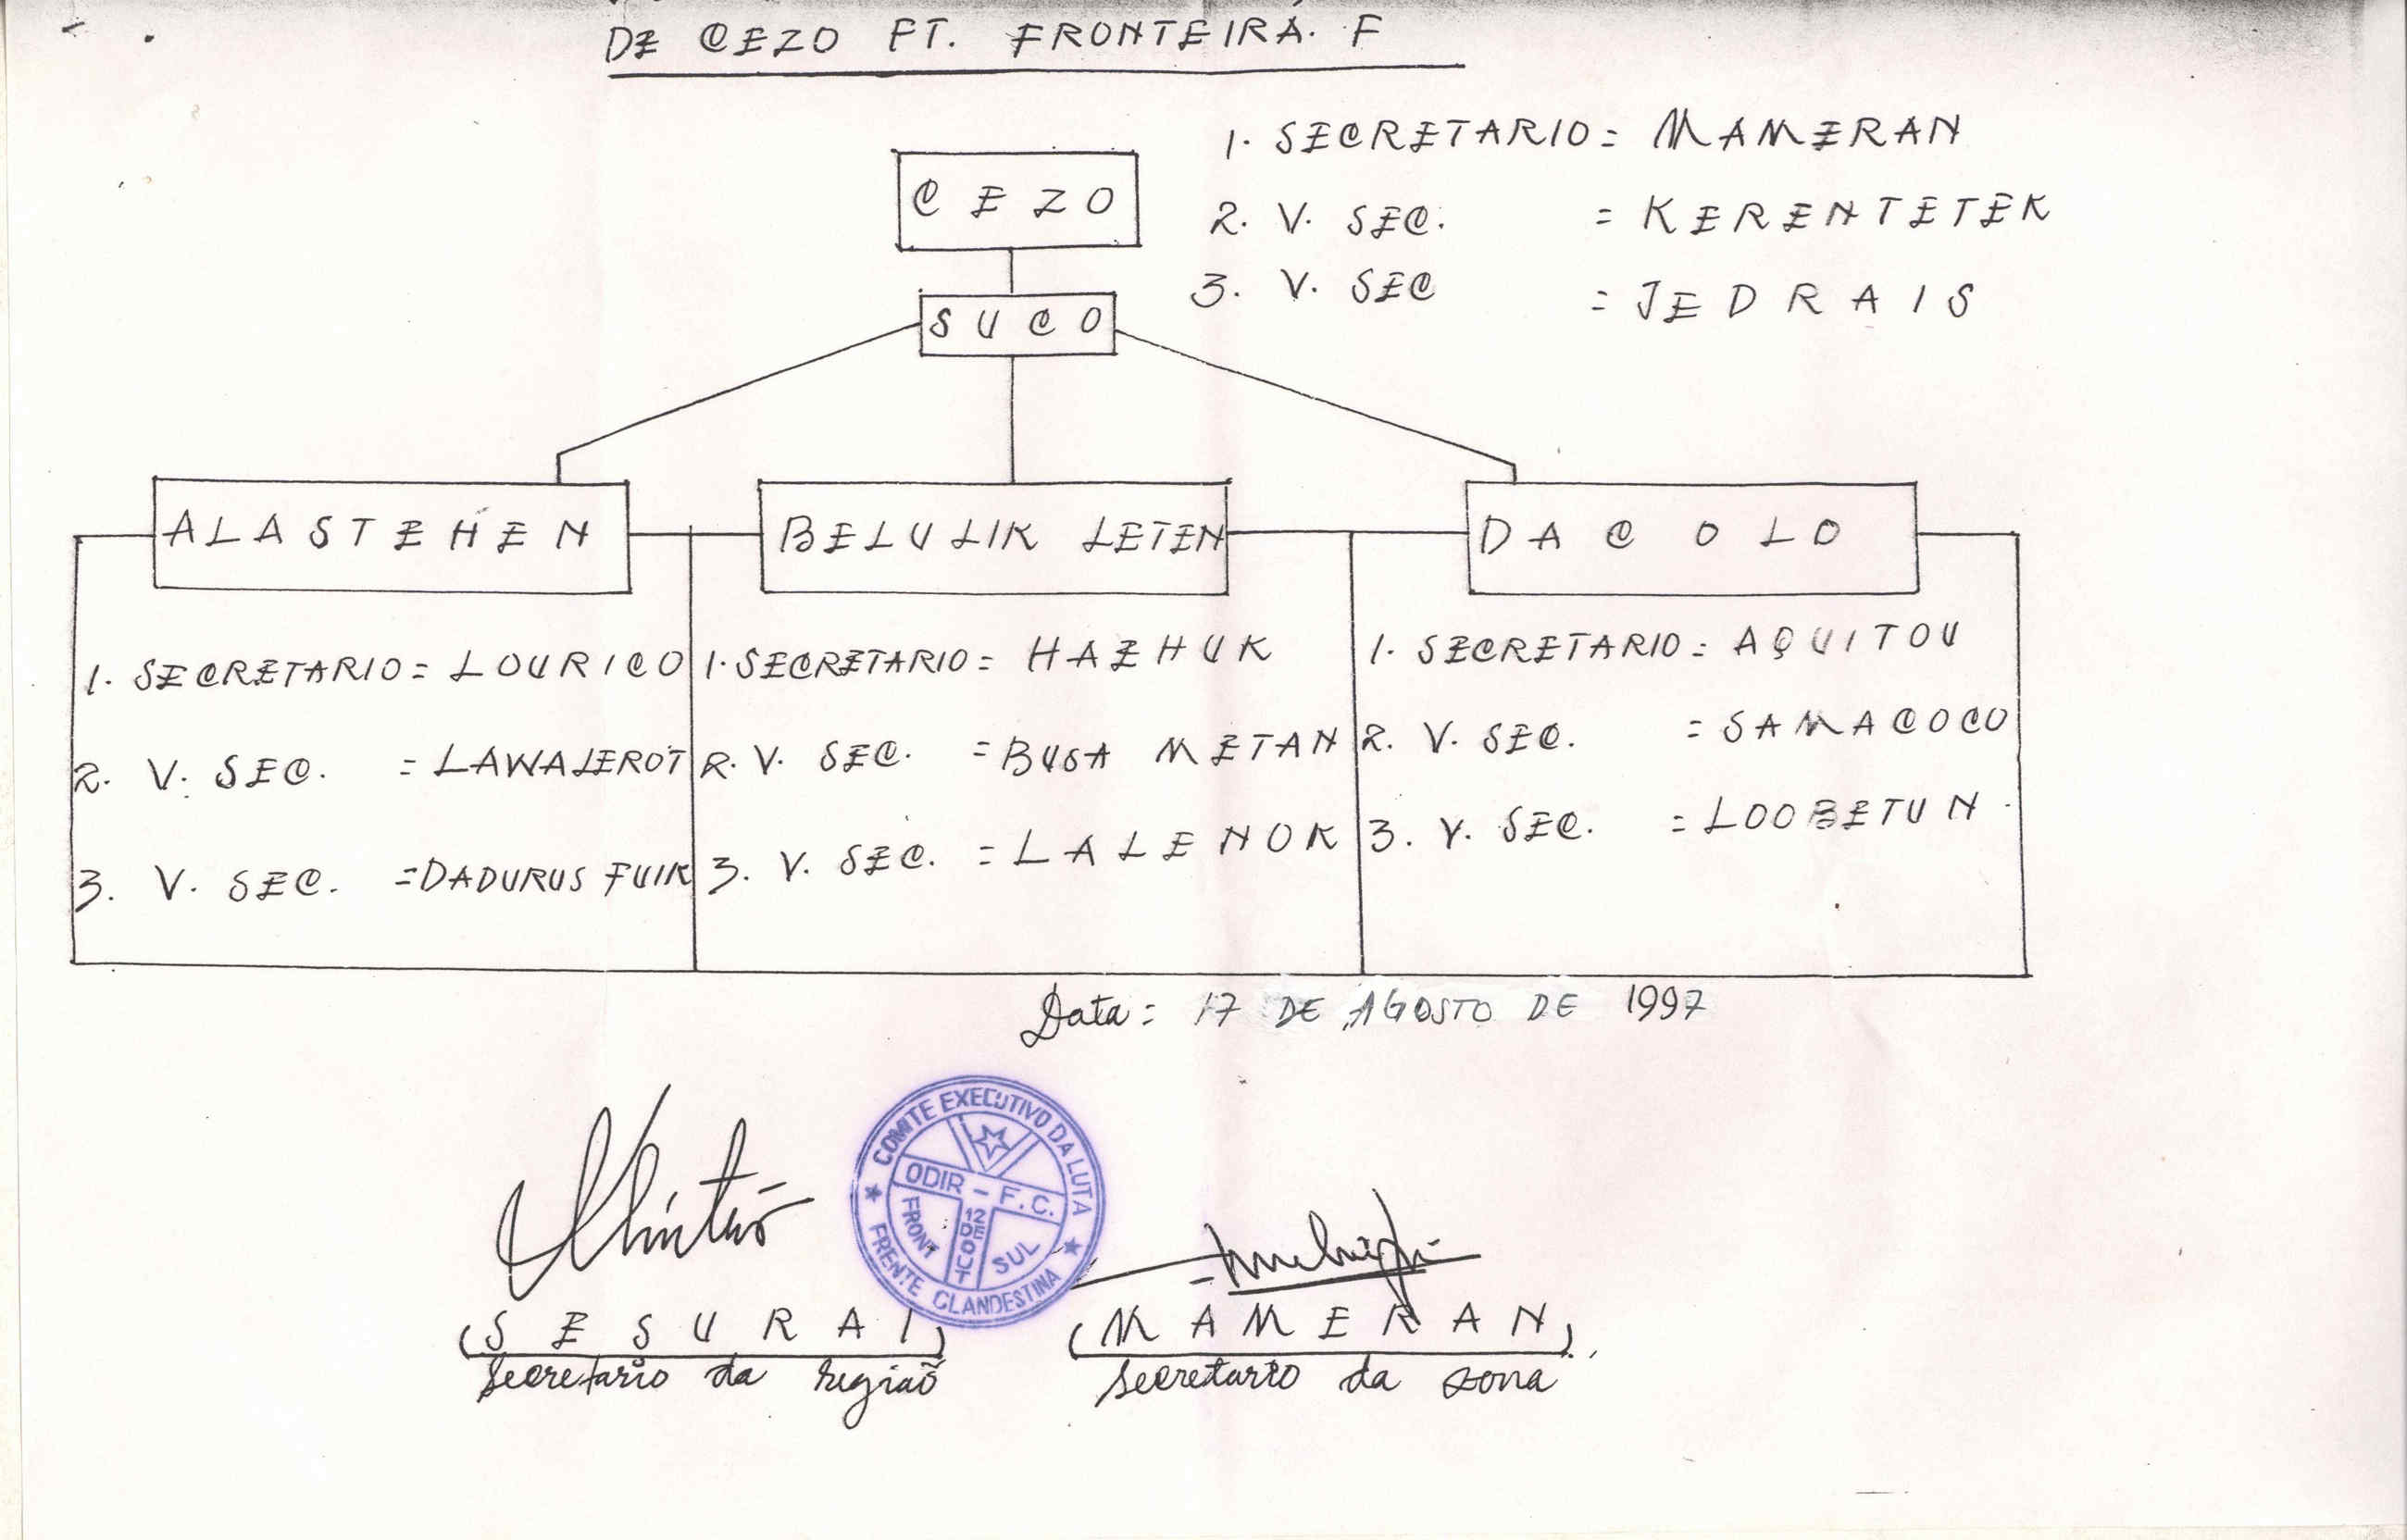 DE CEZO FT. FRONTEIRA. F
CEZO
1. SECRETARIO = MAMERAN
2. V. SEC. = KERENTETEK
3. V. SEC = JEDRAIS
SUCO
ALASTEHEN
BELULIK LETEN
DACOLO
1. SECRETARIO = LOURICO
2. V. SEC. = LAWALEROT
3. V. SEC. = DADURUS FUIK
1. SECRETARIO = HAEHUK
2. V. SEC. = BUSA METAN
3. V. SEC. = LALENOK
1. SECRETARIO = AQUITOU
2. V. SEC. = SAMACOCO
3. V. SEC. = LOOBETUN
Data: 17 DE AGOSTO DE 1997
COMITE EXECUTIVO DA LUTA
ODIR - F.C.
FRONT
12 DE OUT
SUL
FRENTE CLANDESTINA
(SESURAI)
Secretario da região
(MAMERAN)
Secretario da zona